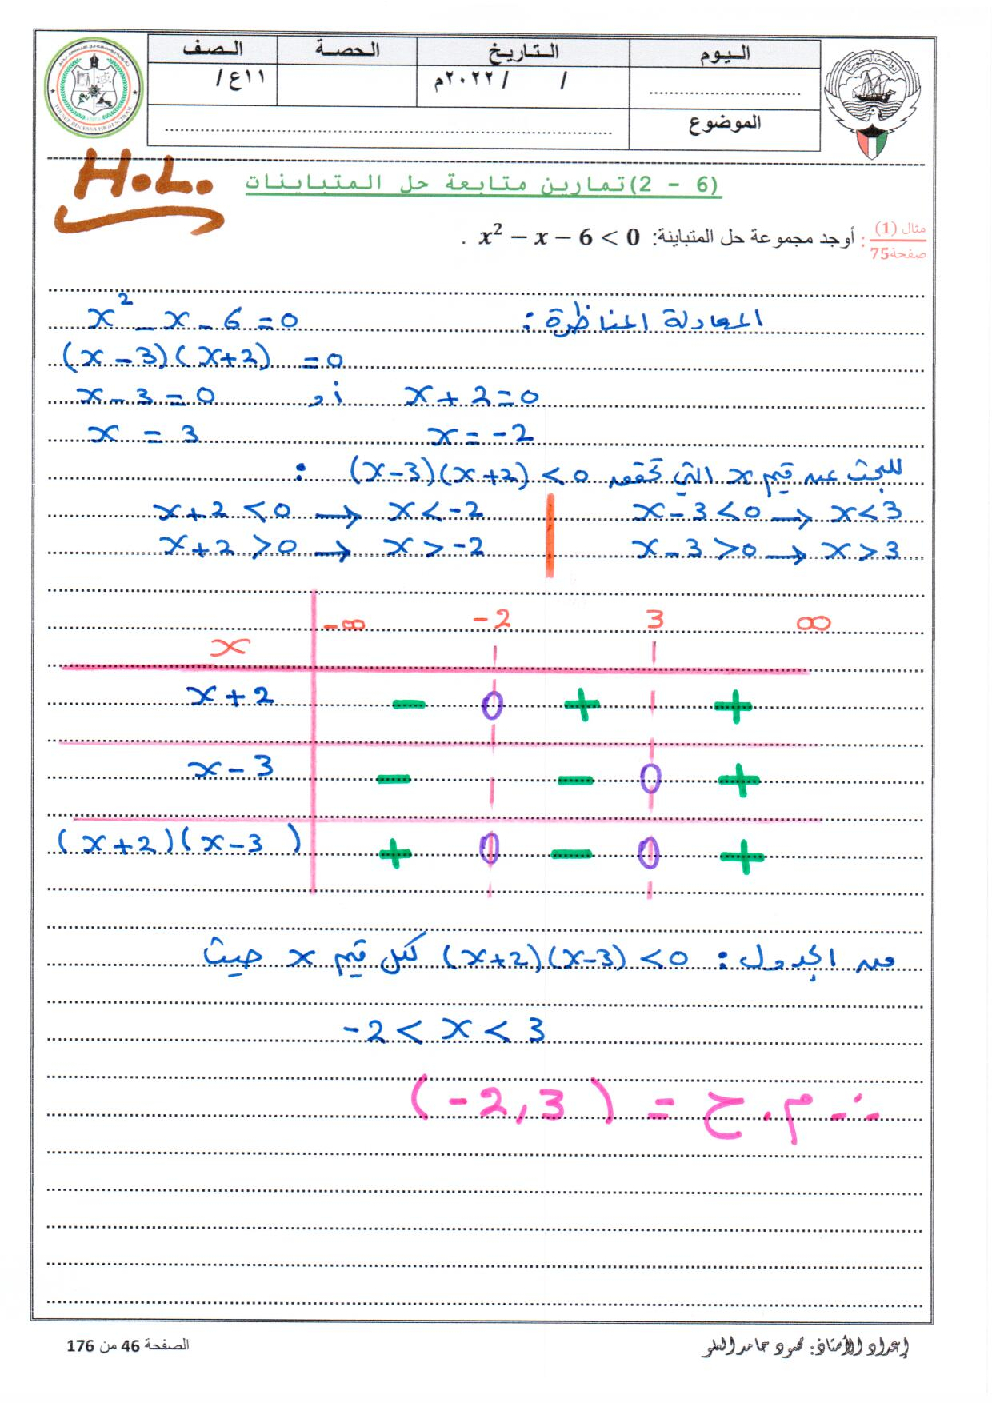 اليوم التاريخ الحصة الصف
/ / ٢٠٢٢م ١١ع/
الموضوع
H.L.
(6 - 2) تمارين متابعة حل المتباينات
مثال (1)
صفحة75 : أوجد مجموعة حل المتباينة: x² − x − 6 < 0 .
المعادلة المناظرة : x² - x - 6 = 0
(x - 3)(x + 2) = 0
x - 3 = 0 أو x + 2 = 0
x = 3 x = -2
للبحث عن قيم x التي تحقق (x-3)(x+2) < 0 :
x + 2 < 0 → x < -2 x - 3 < 0 → x < 3
x + 2 > 0 → x > -2 x - 3 > 0 → x > 3
x -∞ -2 3 ∞
x + 2 - 0 + +
x - 3 - - 0 +
(x+2)(x-3) + 0 - 0 +
من الجدول : (x+2)(x-3) < 0 لكل قيم x حيث
-2 < x < 3
∴ م.ح = (-2, 3)
إعداد الأستاذ: محمود حامد
الصفحة 46 من 176